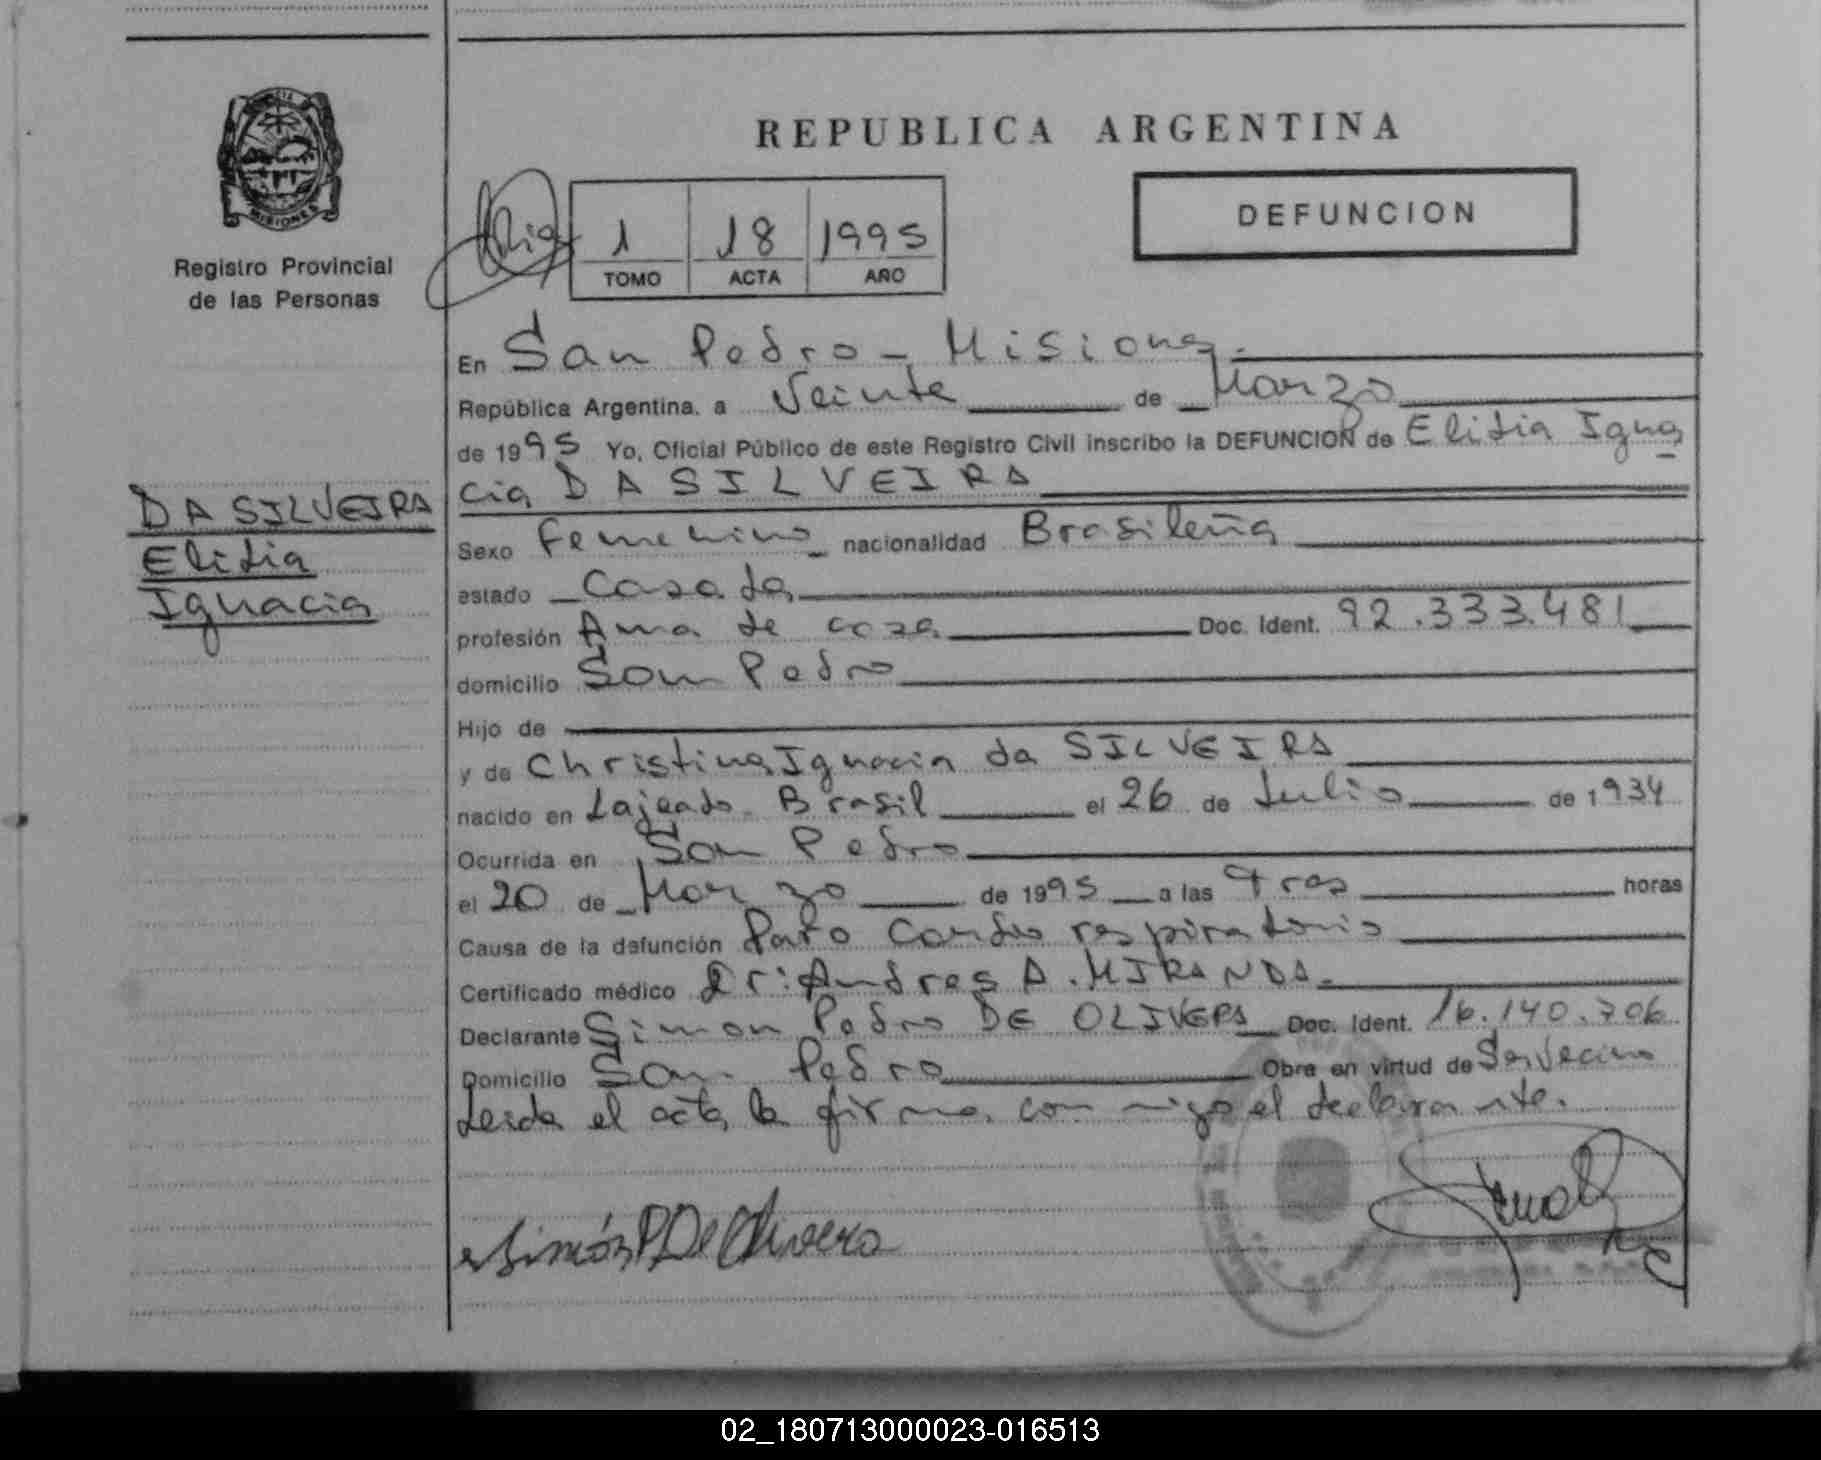 REPUBLICA ARGENTINA
MISIONES
Registro Provincial
de las Personas
1 18 1995
TOMO ACTA AÑO
DEFUNCION
En San Pedro - Misiones.
República Argentina, a Veinte de Marzo
de 1995 Yo, Oficial Público de este Registro Civil inscribo la DEFUNCION de Elidia Igna
cia DA SILVEIRA
DA SILVEIRA
Elidia
Ignacia
Sexo Femenino nacionalidad Brasileña
estado Casada
profesión Ama de casa Doc. Ident. 92.333.481
domicilio San Pedro
Hijo de
y de Christina Ignacia da SILVEIRA
nacido en Lajeado - Brasil el 26 de Julio de 1934
Ocurrida en San Pedro
el 20 de Marzo de 1995 a las Tres horas
Causa de la defunción Paro Cardio respiratorio
Certificado médico Dr: Andres A. MIRANDA.
Declarante Simon Pedro DE OLIVERA Doc. Ident. 16.140.706
Domicilio San Pedro Obra en virtud de Ser Vecino
Leida el acta la firma conmigo el declarante.
Simón P. De Olivera
02_180713000023-016513